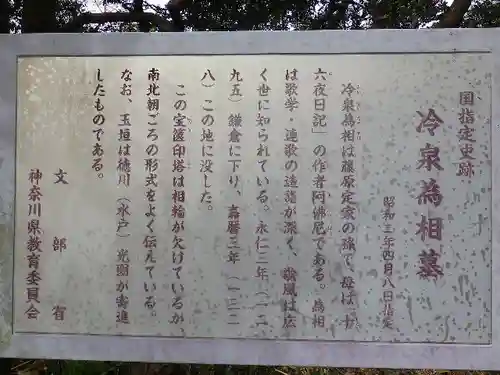 国指定史跡
冷泉為相墓
昭和二年四月八日指定
冷泉為相は藤原定家の孫で、母は「十
六夜日記」の作者阿佛尼である。為相
は歌学・連歌の造詣が深く、歌風は広
く世に知られている。永仁三年（一二
九五）鎌倉に下り、嘉暦三年（一三二
八）この地に没した。
この宝篋印塔は相輪が欠けているが、
南北朝ごろの形式をよく伝えている。
なお、玉垣は徳川（水戸）光圀が寄進
したものである。
文部省
神奈川県教育委員会